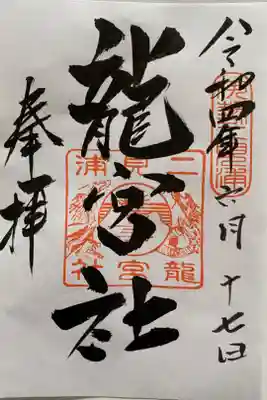 令和四年六月十七日
龍宮社
奉拝
二見浦
龍宮社